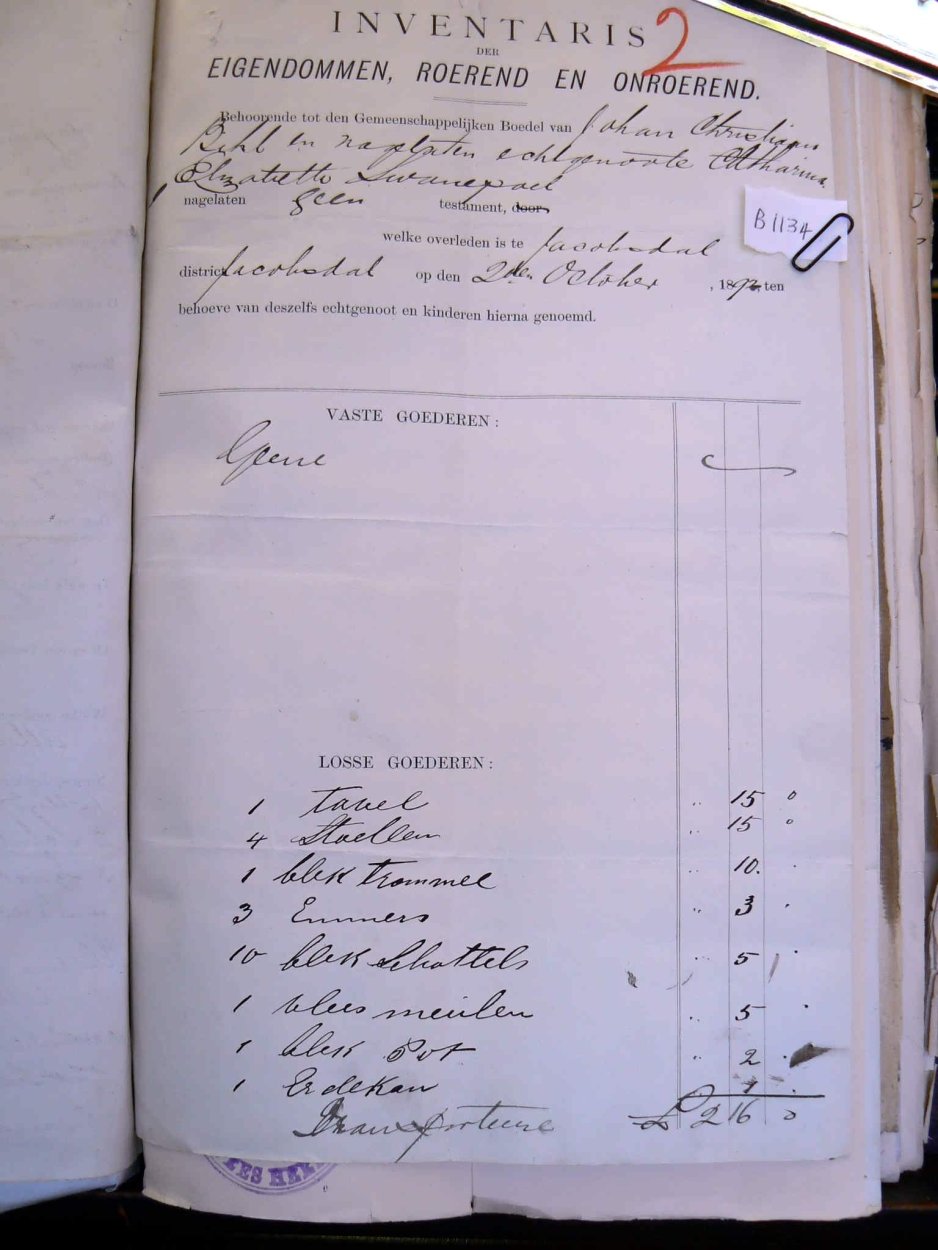 INVENTARIS 2
DER
EIGENDOMMEN, ROEREND EN ONROEREND.
Behoorende tot den Gemeenschappelijken Boedel van Johan Christiaan
en nagelaten echtgenoote Catharina
Elizabetta Swanepoel
nagelaten geen testament, door
B1134
welke overleden is te Jacobsdal
district Jacobsdal op den 2den October , 189 ten
behoeve van deszelfs echtgenoot en kinderen hierna genoemd.
VASTE GOEDEREN:
Geene
LOSSE GOEDEREN:
1 tavel " 15 0
4 Stoellen " 15 0
1 blik trommel " 10.
3 Emmers " 3 .
10 blek Schottels " 5 .
1 vlees meulen " 5 .
1 blek Pot " 2 .
1 Erdekan 1 .
Transporteere £ 2 16 0